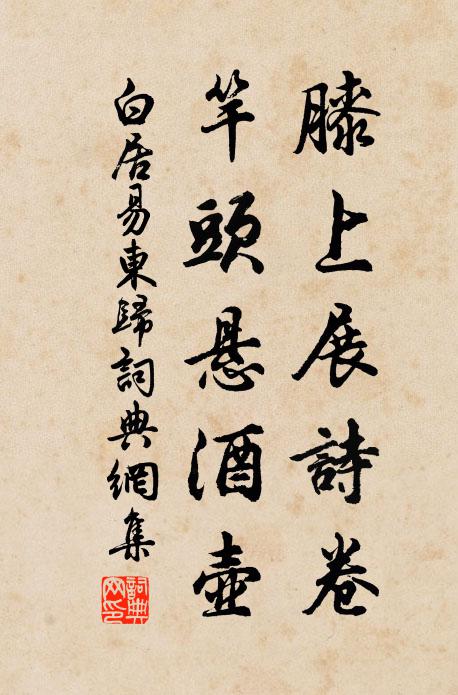 膝上展詩卷
竿頭悬酒壺
白居易東歸詞典網集
詞典網印